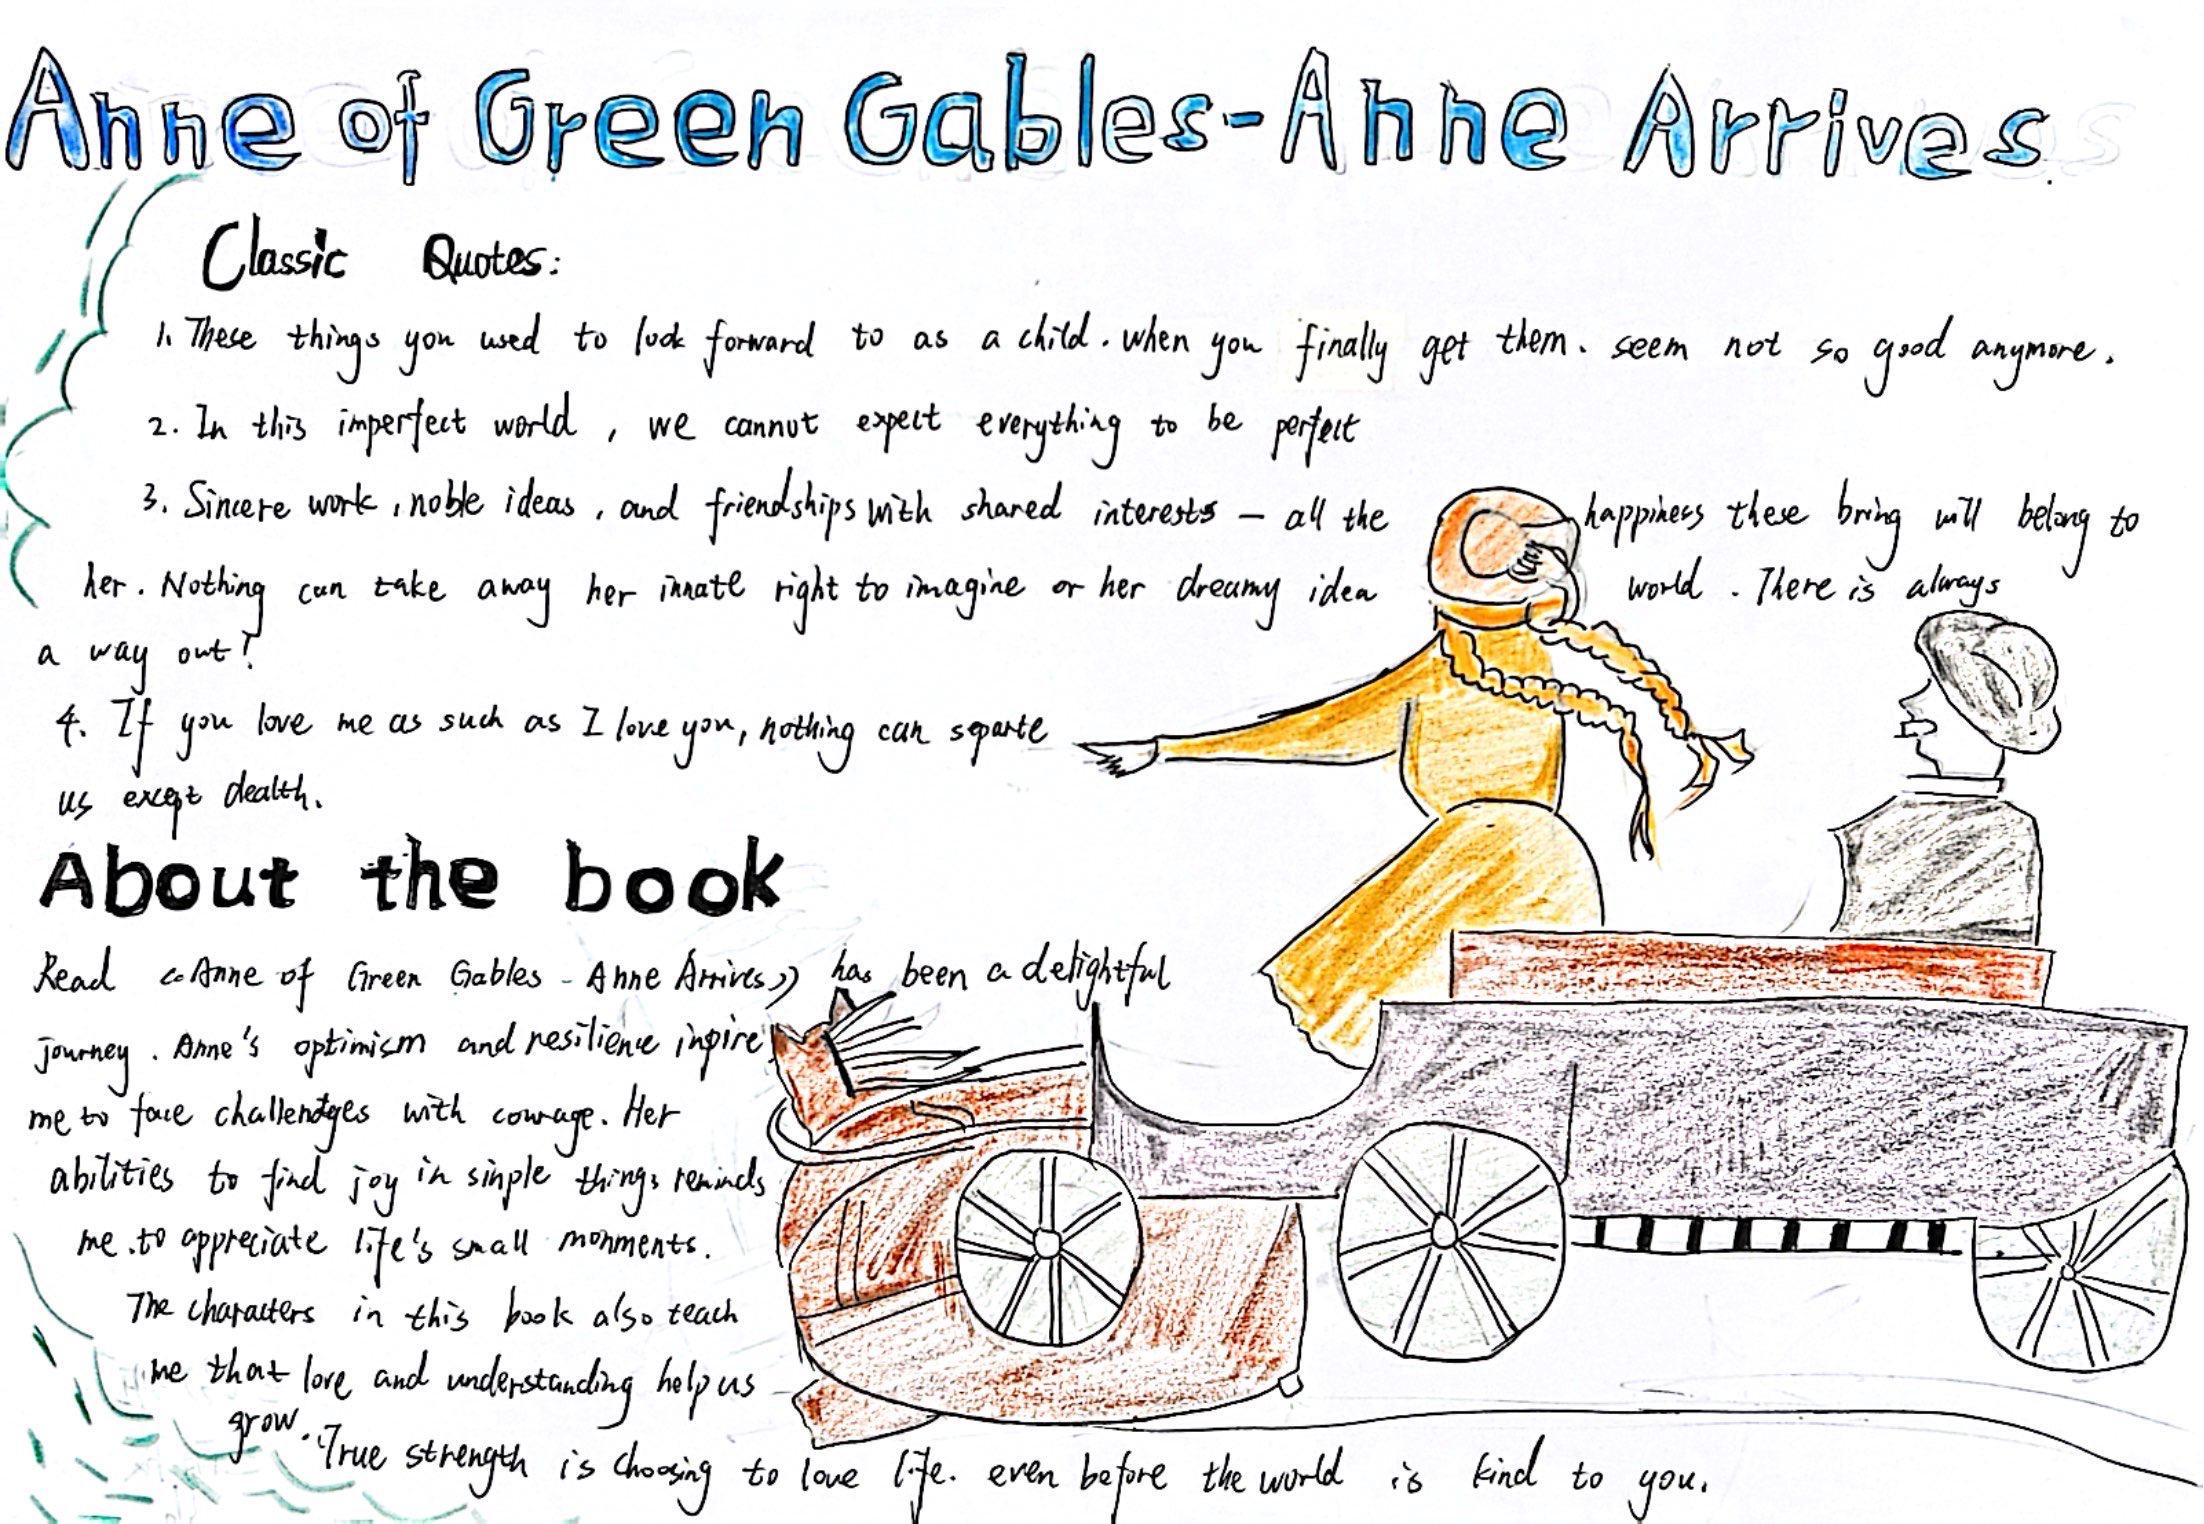 Anne of Green Gables-Anne Arrives
Classic Quotes:
1. These things you used to look forward to as a child. when you finally get them. seem not so good anymore.
2. In this imperfect world, we cannot expect everything to be perfect
3. Sincere work, noble ideas, and friendships with shared interests — all the happiness these bring will belong to
her. Nothing can take away her innate right to imagine or her dreamy idea world. There is always
a way out!
4. If you love me as such as I love you, nothing can separte
us except dealth.
About the book
Read 《Anne of Green Gables - Anne Arrives》 has been a delightful
journey. Anne's optimism and resilience inpire
me to face challendges with courage. Her
abilities to find joy in simple things reminds
me to appreciate life's small monments.
The characters in this book also teach
me that love and understanding help us
grow.
True strength is choosing to love life. even before the world is kind to you.